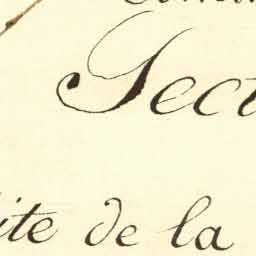 Sect
ite de la